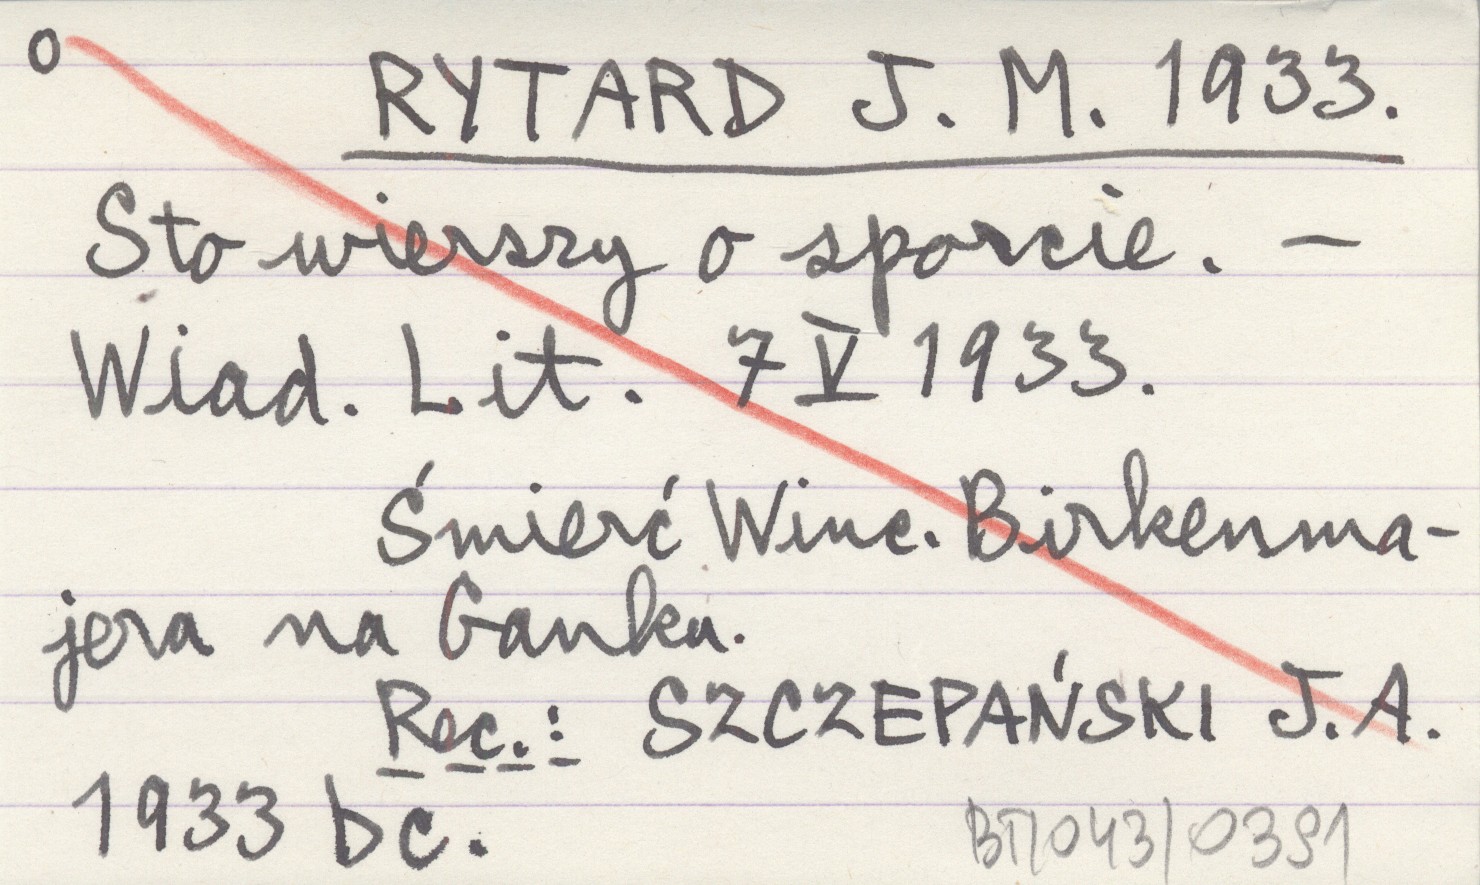 o RYTARD J. M. 1933.
Sto wierszy o sporcie. —
Wiad. Lit. 7 V 1933.
Śmierć Winc. Birkenma-
jera na Ganku.
Rec.: SZCZEPAŃSKI J.A.
1933 bc.
BT/043/0391